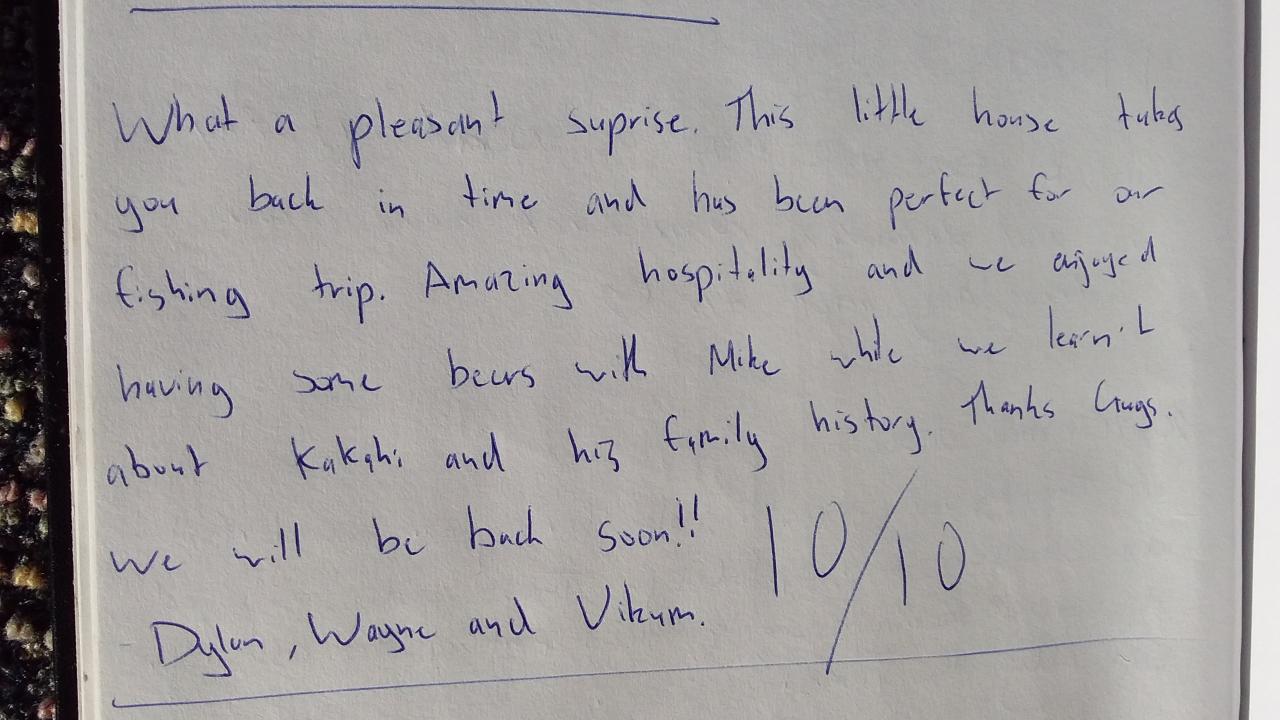 What a pleasant suprise. This little house takes
you back in time and has been perfect for our
fishing trip. Amazing hospitality and we enjoyed
having some beers with Mike while we learn't
about Kakahi and his family history. Thanks Guys.
We will be back soon!! 10/10
- Dylan, Wayne and Vikum.